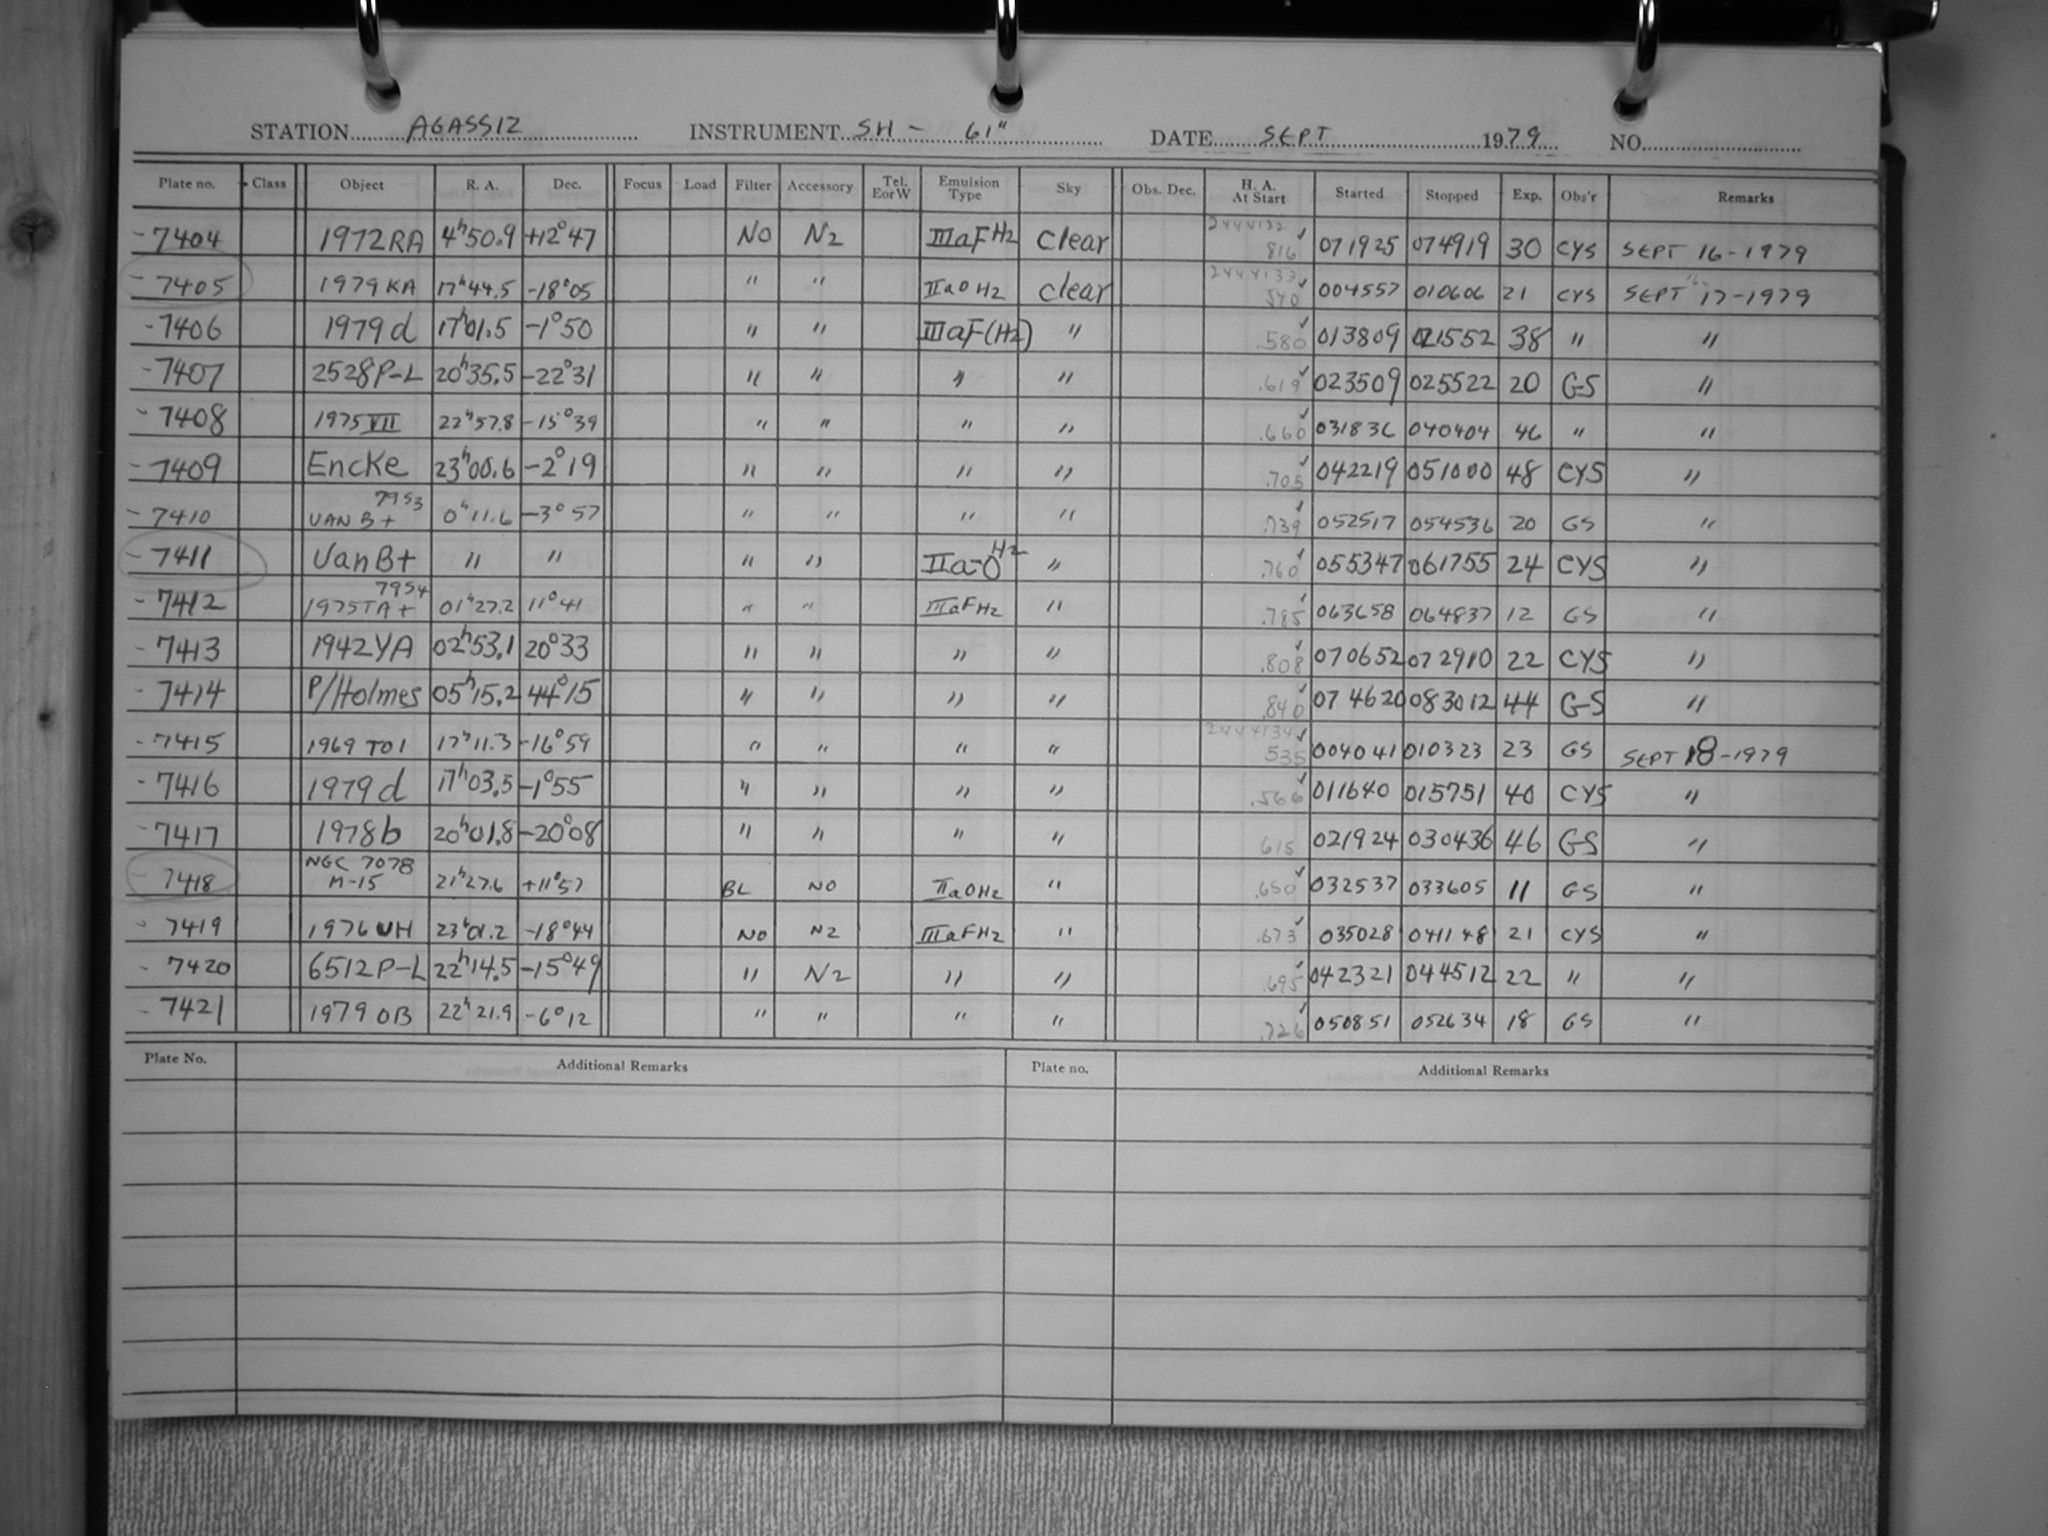 STATION AGASSIZ INSTRUMENT SH - 61" DATE SEPT 1979 NO.
Plate no. Class Object R. A. Dec. Focus Load Filter Accessory Tel. E or W Emulsion Type Sky Obs. Dec. H. A. At Start Started Stopped Exp. Obs'r Remarks
-7404 1972RA 4h50.9 +12°47 NO N2 IIIaF H2 Clear 2444132 .816 071925 074919 30 CYS SEPT 16-1979
-7405 1979KA 17h44.5 -18°05 " " IIaO H2 Clear 2444133 .540 004557 010606 21 CYS SEPT 17-1979
-7406 1979d 17h01.5 -1°50 " " IIIaF(H2) " .580 013809 021552 38 " "
-7407 2528P-L 20h35.5 -22°31 " " " " .619 023509 025522 20 GS "
-7408 1975VII 22h57.8 -15°39 " " " " .660 031836 040404 46 " "
-7409 Encke 23h00.6 -2°19 " " " " .705 042219 051000 48 CYS "
-7410 VAN B+ 7953 0h11.6 -3°57 " " " " .739 052517 054536 20 GS "
-7411 Van B+ " " " " IIa-O H2 " .760 055347 061755 24 CYS "
-7412 1975TA+ 7954 01h27.2 11°41 " " IIIaFH2 " .785 063658 064837 12 GS "
-7413 1942YA 02h53.1 20°33 " " " " .808 070652 072910 22 CYS "
-7414 P/Holmes 05h15.2 44°15 " " " " .840 074620 083012 44 GS "
-7415 1969 TO1 17h11.3 -16°59 " " " " 2444134 .535 004041 010323 23 GS SEPT 18-1979
-7416 1979d 17h03.5 -1°55 " " " " .566 011640 015751 40 CYS "
-7417 1978b 20h01.8 -20°08 " " " " 615 021924 030436 46 GS "
-7418 NGC 7078 M-15 21h27.6 +11°57 BL NO IIaOH2 " .650 032537 033605 11 GS "
-7419 1976UH 23h01.2 -18°44 NO N2 IIIaFH2 " .673 035028 041148 21 CYS "
-7420 6512P-L 22h14.5 -15°49 " N2 " " .695 042321 044512 22 " "
-7421 1979 OB 22h21.9 -6°12 " " " " .726 050851 052634 18 GS "
Plate No. Additional Remarks Plate no. Additional Remarks